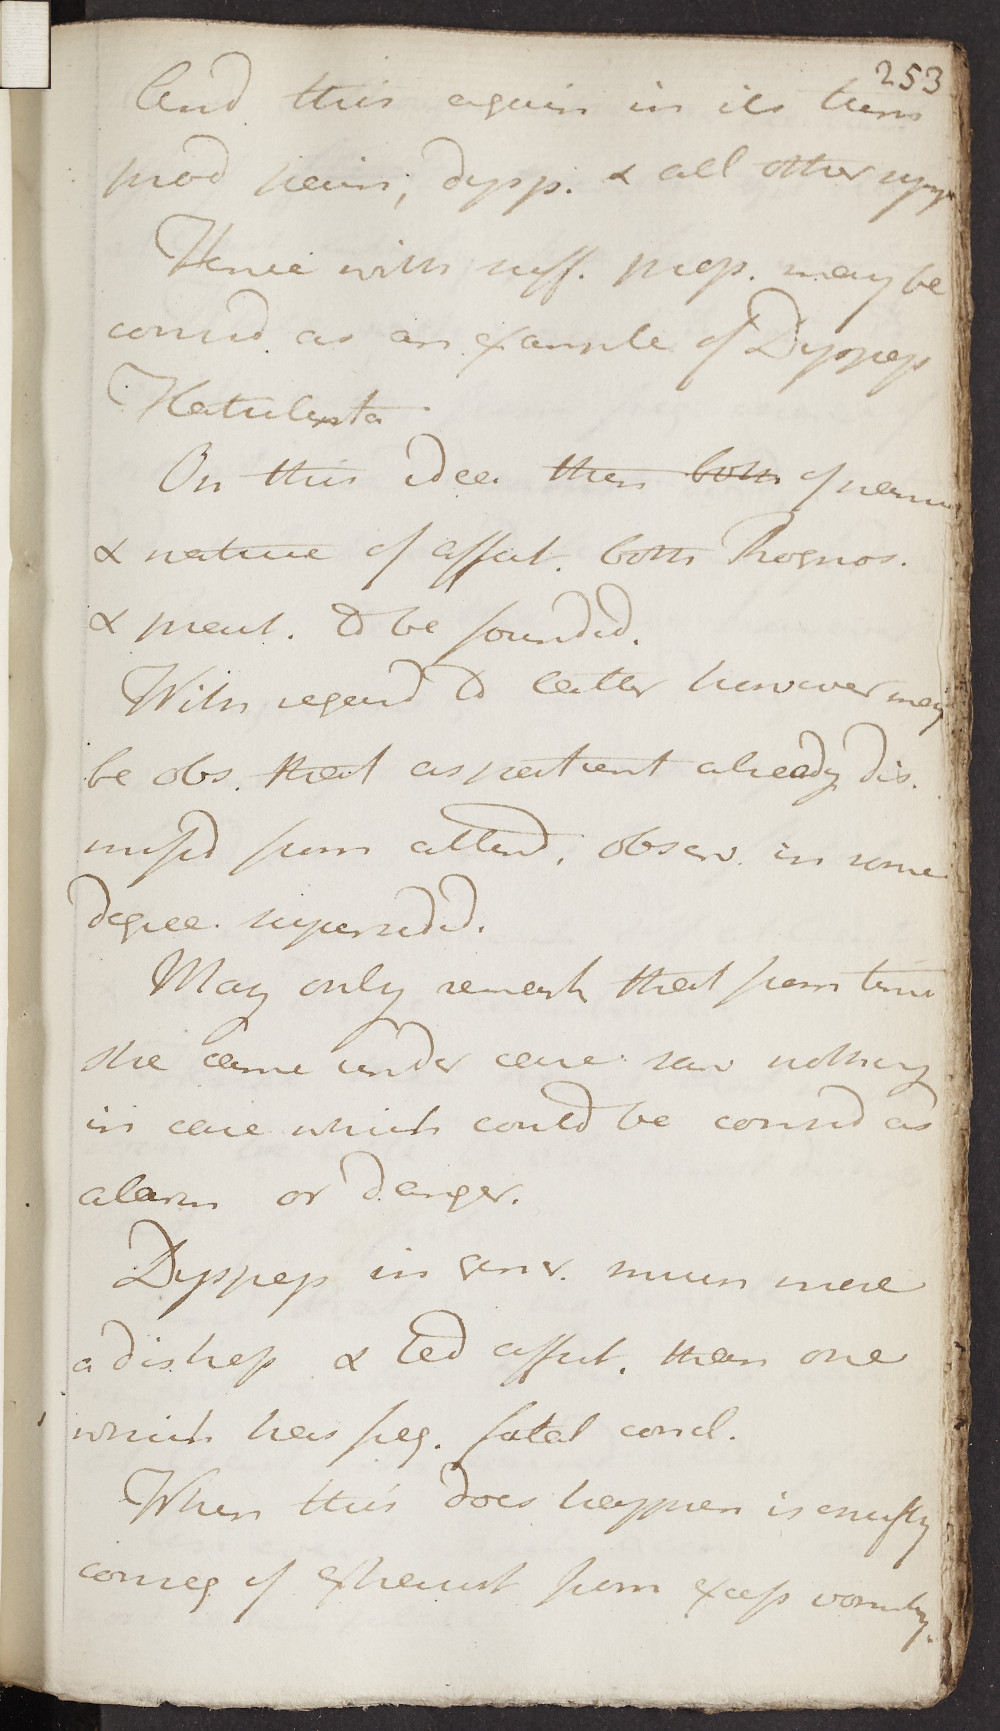 253
And this again in its turn
prod pain, dysp. & all other symp
Hence with suff. prop. may be
consid as an example of Dyspeps
Flatulenta
On this idea then both of name
& nature of affect. both Prognos.
& pract. to be founded.
With regard to latter however may
be obs. that as patient already dis.
missd from attend, observ. in some
degree superseded.
May only remark that from time
she came under care saw nothing
in case which could be consid as
alarm or danger.
Dyspeps in gener. much more
a distress & ted affect. than one
which has freq. fatal concl.
When this does happen is chiefly
conseq of exhaust from excess vomitg.